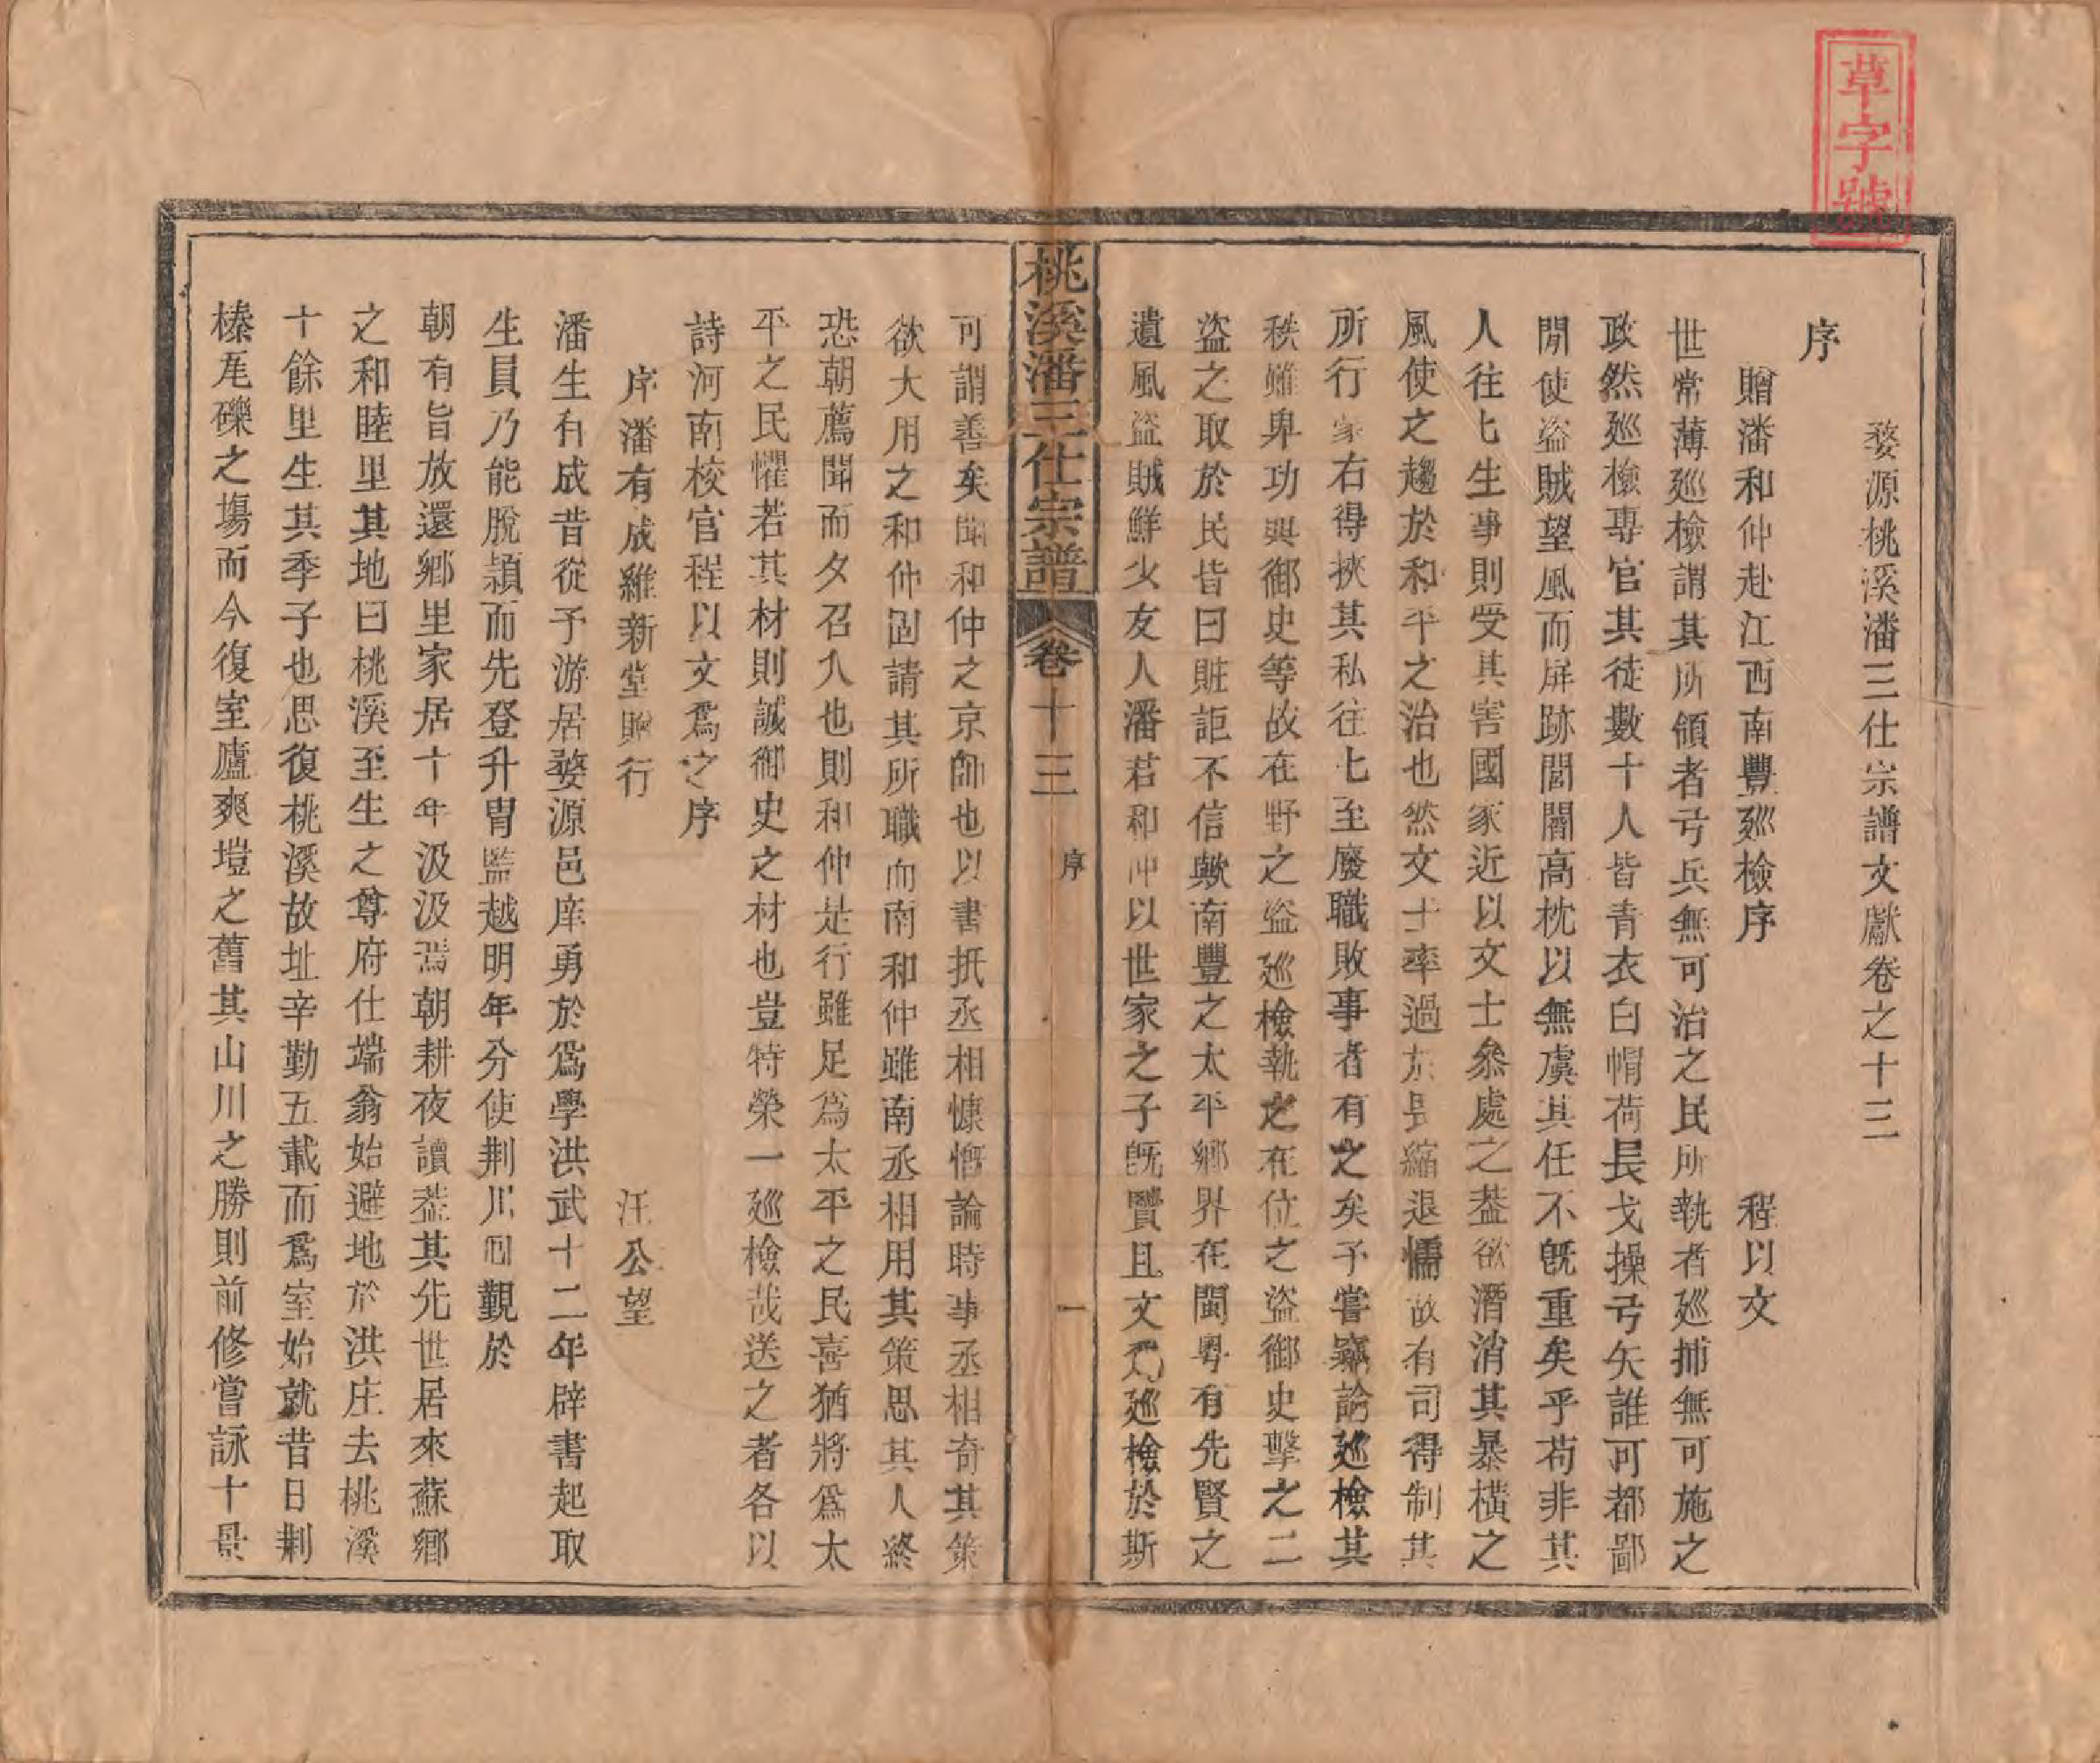 草字號
婺源桃溪潘三仕宗譜文獻卷之十三
序
贈潘和仲赴江西南豐廵檢序　程以文
世常薄廵檢謂其所領者弓兵無可治之民所執者廵捕無可施之
政然廵檢專官其徒數十人皆青衣白帽荷長戈操弓矢誰可都鄙
閒使盜賊望風而屏跡閭閻高枕以無虞其任不旣重矣乎苟非其
人往七生事則受其害國家近以文士叅處之葢欲潛消其暴橫之
風使之趨於和平之治也然文士率過於長縮退懦故有司得制其
所行家右得挾其私往七至廢職敗事者有之矣予嘗竊論廵檢其
秩雖卑功與御史等故在野之盜廵檢執之在位之盜御史擊之二
盜之取於民皆曰賍詎不信歟南豐之太平鄉界在閩粤有先賢之
遺風盜賊鮮少友人潘君和仲以世家之子旣賢且文爲廵檢於斯
桃溪潘三仕宗譜　卷十三　序　一
可謂善矣聞和仲之京師也以書抵丞相慷慨論時事丞相奇其策
欲大用之和仲固請其所職而南和仲雖南丞相用其策思其人終
恐朝薦聞而夕召入也則和仲是行雖足爲太平之民喜猶將爲太
平之民懼若其材則誠御史之材也豈特榮一廵檢哉送之者各以
詩河南校官程以文爲之序
序潘有成維新堂贈行　汪公望
潘生有成昔從予游居婺源邑庠勇於爲學洪武十二年辟書起取
生員乃能脫頴而先登升胄監越明年分使荆川囘覲於
朝有旨放還鄉里家居十年汲汲焉朝耕夜讀葢其先世居來蘇鄉
之和睦里其地曰桃溪至生之尊府仕端翁始避地於洪庄去桃溪
十餘里生其季子也思復桃溪故址辛勤五載而爲室始就昔日荆
榛瓦礫之塲而今復室廬爽塏之舊其山川之勝則前修嘗詠十景